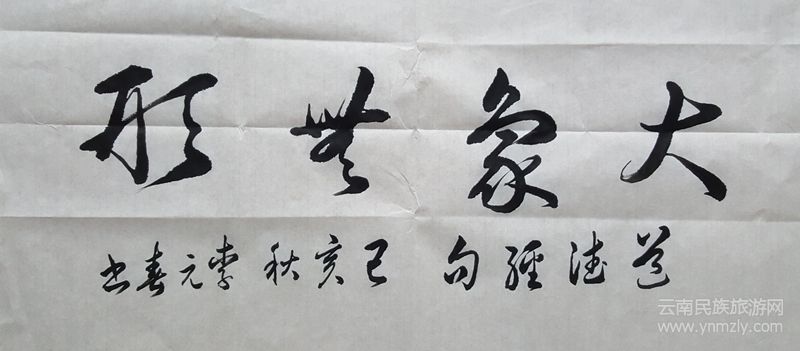 大象無形
道德經句 己亥秋 李元春书
云南民族旅游网
www.ynmzly.com